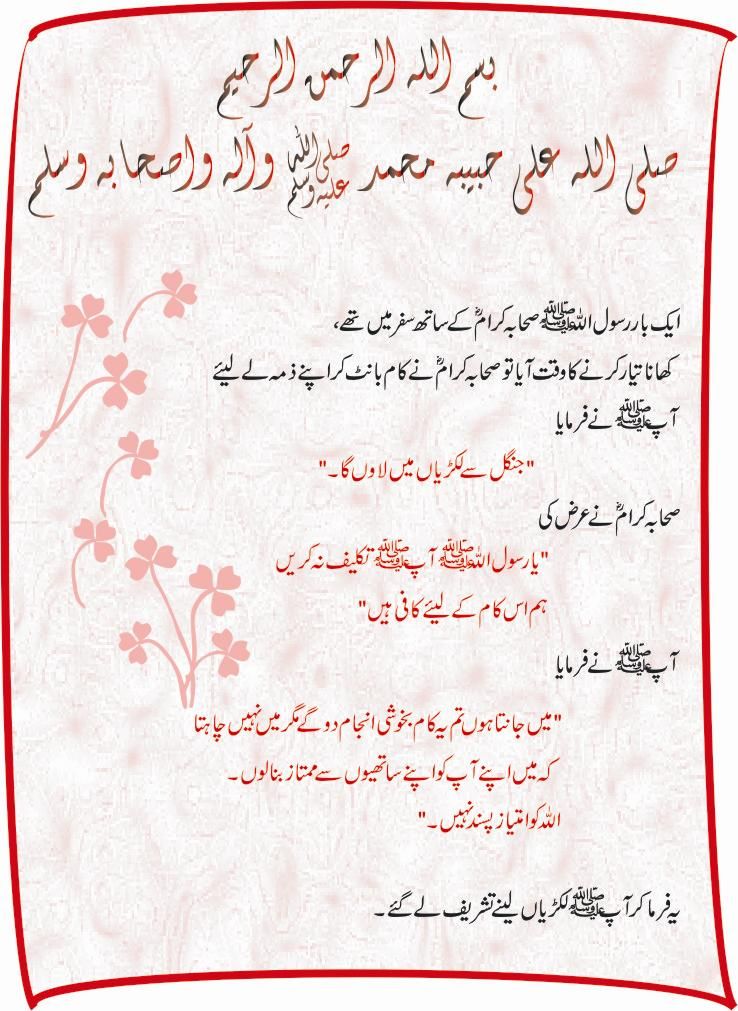 بسم الله الرحمن الرحيم
صلى الله على حبيبه محمد ﷺ وآله واصحابه وسلم
ایک بار رسول اللہﷺ صحابہ کرامؓ کے ساتھ سفر میں تھے،
کھانا تیار کرنے کا وقت آیا تو صحابہ کرامؓ نے کام بانٹ کر اپنے ذمہ لے لیئے
آپﷺ نے فرمایا
"جنگل سے لکڑیاں میں لاوں گا۔"
صحابہ کرامؓ نے عرض کی
"یا رسول اللہﷺ آپﷺ تکلیف نہ کریں
ہم اس کام کے لیئے کافی ہیں"
آپﷺ نے فرمایا
"میں جانتا ہوں تم یہ کام بخوشی انجام دو گے مگر میں نہیں چاہتا
کہ میں اپنے آپ کو اپنے ساتھیوں سے ممتاز بنالوں۔
اللہ کو امتیاز پسند نہیں۔"
یہ فرما کر آپﷺ لکڑیاں لینے تشریف لے گئے۔